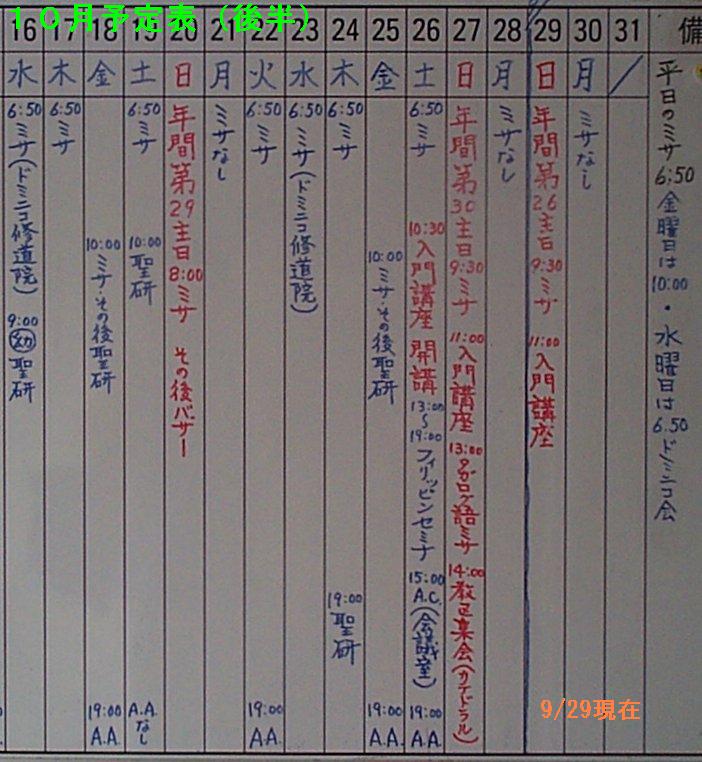 10月予定表(後半)
16 17 18 19 20 21 22 23 24 25 26 27 28 29 30 31 備
水 木 金 土 日 月 火 水 木 金 土 日 月 日 月 /
6:50 ミサ(ドミニコ修道院)
9:00 幼 聖研
6:50 ミサ
10:00 ミサ・その後聖研
19:00 A.A.
6:50 ミサ
10:00 聖研
A.A.なし
年間第29主日 8:00 ミサ その後バザー
ミサなし
6:50 ミサ
19:00 A.A.
6:50 ミサ(ドミニコ修道院)
6:50 ミサ
19:00 聖研
10:00 ミサ・その後聖研
19:00 A.A.
6:50 ミサ
10:30 入門講座 開講
13:00〜19:00 フィリッピンセミナ
15:00 A.C.(会議室)
19:00 A.A.
年間第30主日 9:30 ミサ
11:00 入門講座
13:00 タガログ語ミサ
14:00 教区集会(カテドラル)
ミサなし
年間第26主日 9:30 ミサ
11:00 入門講座
ミサなし
平日のミサ 6:50 金曜日は 10:00・水曜日は 6.50 ドミニコ会
9/29現在